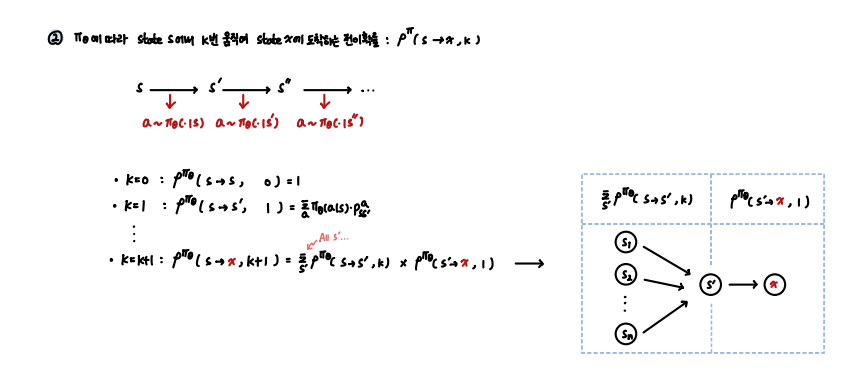 ② πθ에 따라 state s에서 k번 움직여 state x에 도착하는 전이확률 : ρ^π(s→x, k)
s → s' → s'' → ...
a ~ πθ(·|s) a ~ πθ(·|s') a ~ πθ(·|s'')
• k=0 : ρ^πθ(s→s, 0) = 1
• k=1 : ρ^πθ(s→s', 1) = Σ_a πθ(a|s)·P^a_ss'
⋮
All s'...
• k=k+1 : ρ^πθ(s→x, k+1) = Σ_s' ρ^πθ(s→s', k) × ρ^πθ(s'→x, 1) →
Σ_s' ρ^πθ(s→s', k) ρ^πθ(s'→x, 1)
s₁
s₂
⋮
sₙ
s' → x